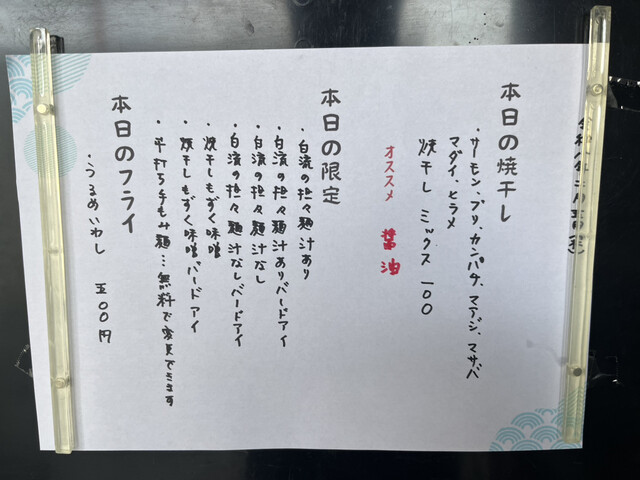 本日の焼干し
・サーモン、ブリ、カンパチ、マアジ、マサバ
マダイ、ヒラメ
焼干しミックス一〇〇
オススメ 醤油
本日の限定
・白濁の担々麺汁あり
・白濁の担々麺汁ありバードアイ
・白濁の担々麺汁なし
・白濁の担々麺汁なしバードアイ
・焼干しもずく味噌
・焼干しもずく味噌バードアイ
・平打ち手もみ麺…無料で変更できます
本日のフライ
・うるめいわし 五〇〇円